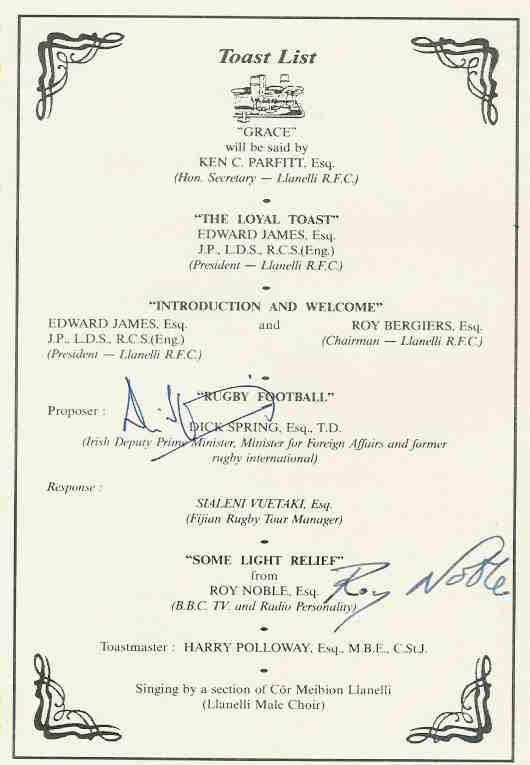 Toast List
"GRACE"
will be said by
KEN C. PARFITT, Esq.
(Hon. Secretary — Llanelli R.F.C.)
"THE LOYAL TOAST"
EDWARD JAMES, Esq.
J.P., L.D.S., R.C.S.(Eng.)
(President — Llanelli R.F.C.)
"INTRODUCTION AND WELCOME"
EDWARD JAMES, Esq. and ROY BERGIERS, Esq.
J.P., L.D.S., R.C.S.(Eng.) (Chairman — Llanelli R.F.C.)
(President — Llanelli R.F.C.)
"RUGBY FOOTBALL"
Proposer :
DICK SPRING, Esq., T.D.
(Irish Deputy Prime Minister, Minister for Foreign Affairs and former
rugby international)
Response :
SIALENI VUETAKI, Esq.
(Fijian Rugby Tour Manager)
"SOME LIGHT RELIEF"
from
ROY NOBLE, Esq.
Roy Noble
(B.B.C. TV. and Radio Personality)
Toastmaster : HARRY POLLOWAY, Esq., M.B.E., C.St.J.
Singing by a section of Côr Meibion Llanelli
(Llanelli Male Choir)